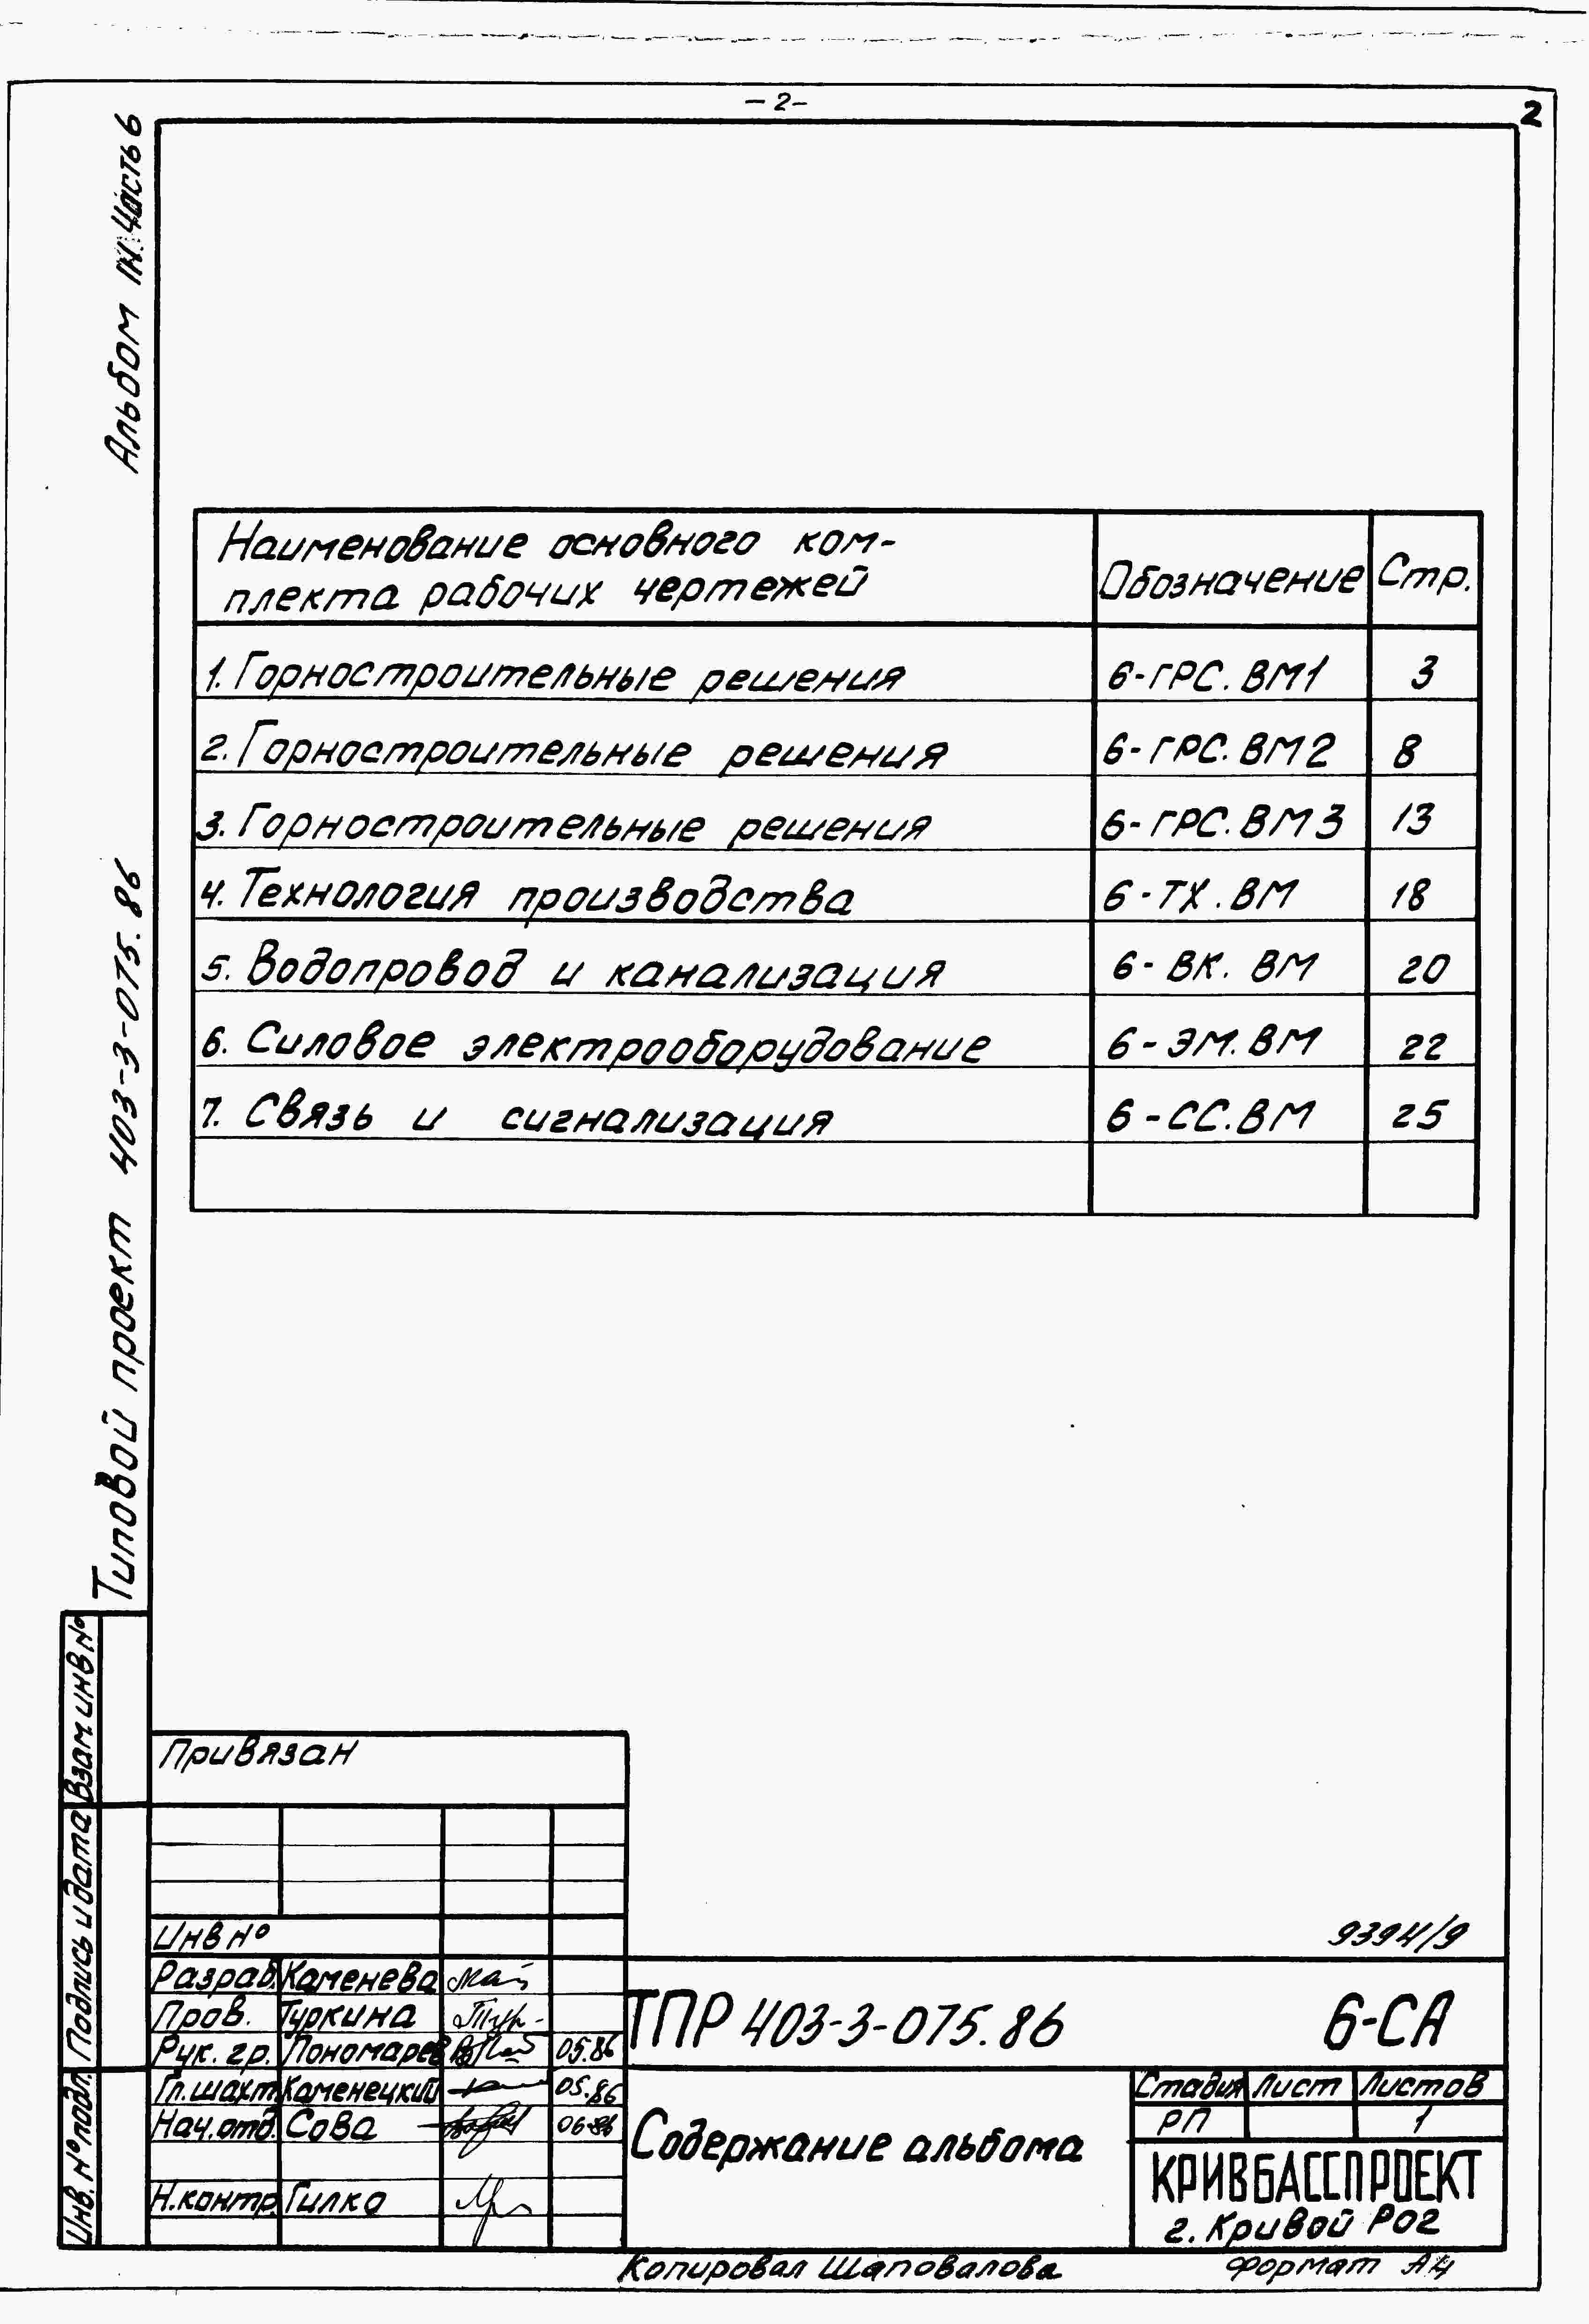 - 2 -
2
Альбом IV. Часть 6
Типовой проект 403-3-075.86
Наименование основного ком-
плекта рабочих чертежей
Обозначение
Стр.
1. Горностроительные решения 6-ГРС.ВМ1 3
2. Горностроительные решения 6-ГРС.ВМ2 8
3. Горностроительные решения 6-ГРС.ВМ3 13
4. Технология производства 6-ТХ.ВМ 18
5. Водопровод и канализация 6-ВК.ВМ 20
6. Силовое электрооборудование 6-ЭМ.ВМ 22
7. Связь и сигнализация 6-СС.ВМ 25
Взам инв №
Подпись и дата
Инв. № подл.
Привязан
Инв №
9394/9
Разраб. Каменева
Пров. Туркина
Рук. гр. Пономарев 05.86
Гл. шахт. Каменецкий 05.86
Нач. отд. Сова 06.86
Н. контр. Гилко
ТПР 403-3-075.86 6-СА
Содержание альбома
Стадия Лист Листов
РП 1
КРИВБАССПРОЕКТ
г. Кривой Рог
Копировал Шаповалова
Формат А4